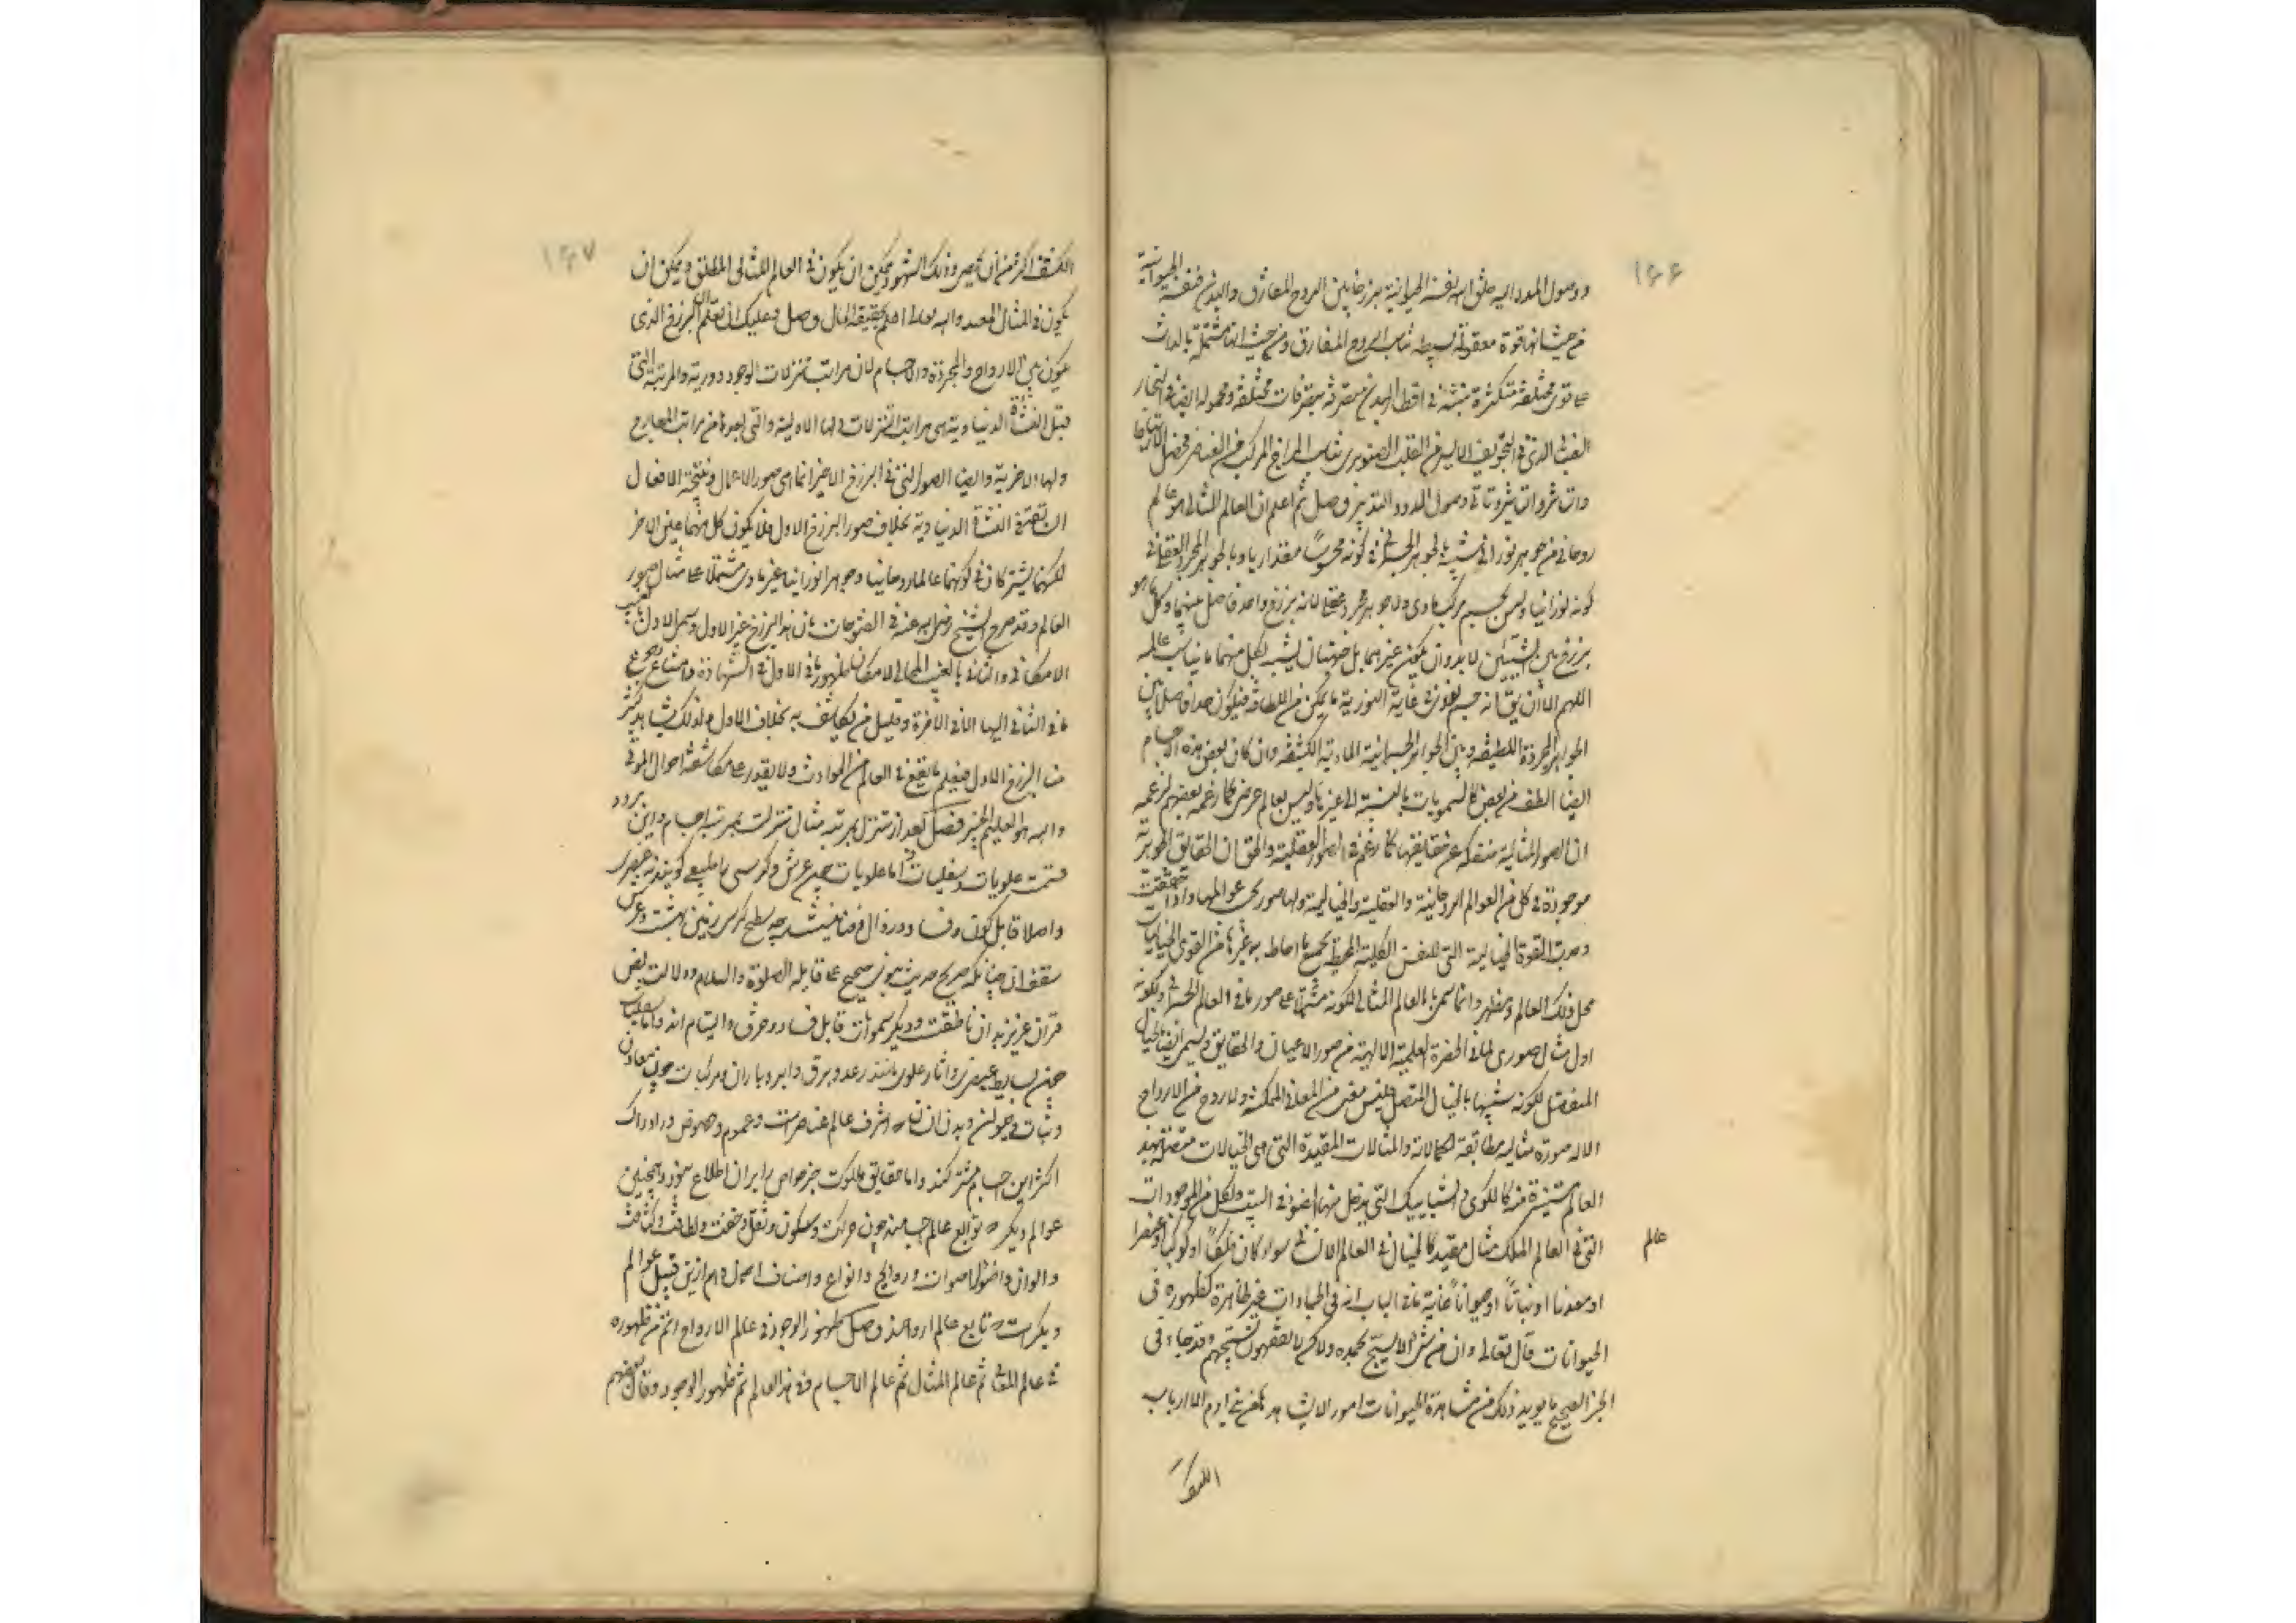 ۱۴۶
ووصول المدد اليه خلق الله نفسه الحيوانية برزخا بين الروح المفارق والبدن فنفسه الحيوانية
من حيث انها قوة معقولة بسيطة تناسب الروح المفارق ومن حيث انها مشتملة بالذات
على قوى مختلفة متكثرة منبثة في اقطار البدن متصرفة بتصرفات مختلفة ومحمولة ايضا في البخار
الذى في التجويف الايسر من القلب الصنوبرى تناسب المزاج المركب من العناصر فحصل الارتباط
والتأثر وتأتى وصول المدد والتدبير وصل ثم اعلم ان العالم المثالى هو عالم
روحانى من جوهر نورانى شبيه بالجوهر الجسمانى في كونه محسوسا مقداريا وبالجوهر المجرد العقلى في
كونه نورانيا وليس بجسم مركب مادى ولا جوهر مجرد عقلى لانه برزخ وحد فاصل بينهما وكل ما هو
برزخ بين الشيئين لا بد وان يكون غيرهما بل له جهتان يشبه بكل منهما ما يناسب عالمه
اللهم الا ان يقال انه جسم نورى في غاية ما يمكن من اللطافة فيكون حدا فاصلا بين
الجواهر المجردة اللطيفة وبين الجواهر الجسمانية المادية الكثيفة وان كان بعض هذه الاجسام
ايضا الطف من بعض كالسمويات بالنسبة الى غيرها وليس بعالم عرضى كما زعمه بعضهم لزعمه
ان الصور المثالية منفكة عن حقايقها كما زعم في الصور العقلية والحق ان الحقايق الجوهرية
موجودة في كل من العوالم الروحانية والعقلية والخيالية ولها صور بحسب عوالمها واذا حققت
وجدت القوة الخيالية التى للنفس الكلية المحيطة بجميع ما احاط به غيرها من القوى الخياليات
محل ذلك العالم ومظهره وانما سمى بالعالم المثالى لكونه مشتملا على صور ما في العالم الجسمانى ولكونه
اول مثال صورى لما في الحضرة العلمية الالهية من صور الاعيان والحقايق ويسمى ايضا بالخيال
المنفصل لكونه شبيها بالخيال المتصل فليس معنى من المعانى الممكنة ولا روح من الارواح
الا له صورة مثالية مطابقة لكمالاته والمثالات المقيدة التى هى الخيالات متصلة بهذا
العالم مستنيرة منه كالكوى والشبابيك التى يدخل منها الضوء في البيت ولكل من الموجودات
التى في العالم الملك مثال مقيد كالخيال في العالم الانسانى سواء كان فلكا او كوكبا او عنصرا
عالم
او معدنا او نباتا او حيوانا غاية ما في الباب انه في الجمادات غير ظاهرة كظهوره في
الحيوانات قال تعالى وان من شئ الا يسبح بحمده ولكن لا تفقهون تسبيحهم وقد جاء في
الخبر الصحيح ما يويد ذلك من مشاهدة الحيوانات امورا لا يشاهدها من بنى ادم الا ارباب
الكشف
۱۴۷
الكشف اكثر من ان يحصى وذلك الشهود يمكن ان يكون في العالم المثالى المطلق ويمكن ان
يكون في المثال المقيد والله تعالى اعلم بحقيقة الحال وصل وعليك ان تعلم ان البرزخ الذى
يكون بين الارواح المجردة والاجسام لان مراتب تنزلات الوجود دورية والمرتبة التى
قبل النشأة الدنياوية هى مراتب التنزلات ولها الاولية والتى بعدها من مراتب المعارج
ولها الاخرية وايضا الصور التى في البرزخ الاخير انما هى صور الاعمال ونتيجة الافعال
السابقة في النشأة الدنياوية بخلاف صور البرزخ الاول فلا يكون كل منهما عين الاخر
لكنهما يشتركان في كونهما عالما روحانيا وجوهرا نورانيا غير مادى مشتملا على مثال صور
العالم وقد صرح الشيخ رضى الله عنه في الفتوحات بان هذا البرزخ غير الاول ويسمى الاول بالغيب
الامكانى والثانى بالغيب المحالى لامكان ظهور ما في الاول في الشهادة وامتناع رجوع
ما في الثانى اليها الا في الاخرة وقليل من يكاشف به بخلاف الاول ولذلك يشاهد كثير
منا البرزخ الاول فيعلم ما يقع في العالم من الحوادث ولا يقدر على مكاشفة احوال الموتى
والله هو العليم الخبير فصل بعد از تنزل بمرتبه مثال تنزلست بمرتبه اجسام واين بر دو
قسمست علويات وسفليات اما علويات چون عرش وكرسى كه طبيعى گويند نه عنصرى
واصلا قابل كون وفساد وزوال وفنا نيستند چه سطح كرسى زمين بهشت وعرش
سقف ان چنانكه صريح حديث نبوى صحيح على قايله الصلوة والسلام ودلالت بعض
قران عزيز بدان ناطقست وديگر سموات قابل فساد وخرق والتيام اند واما سفليات
چون بسايط عنصرى واثار علوى مانند رعد وبرق وابر وباران ومركبات چون معادن
ونبات وحيوان وبدن انسان كه اشرف عالم عناصرست وعموم وخصوص در ادراك
اكثر اين اجسام مشتركند واما حقايق ملكوت جز خواص را بران اطلاع نبود وهمچنين
عوالم ديگر كه توابع عالم اجسامند چون حركت وسكون وثقل وخفت ولطافت وكثافت
والوان واضواء واصوات وروايح وانواع واصناف اجسام وهم ازين قبيل عوالم
ديگرست كه تابع عالم ارواحند وصل ظهور الوجود في عالم الارواح اتم من ظهوره
في عالم المعانى ثم عالم المثال ثم عالم الاجسام وفي هذا العالم تم ظهور الوجود وقال بعضهم